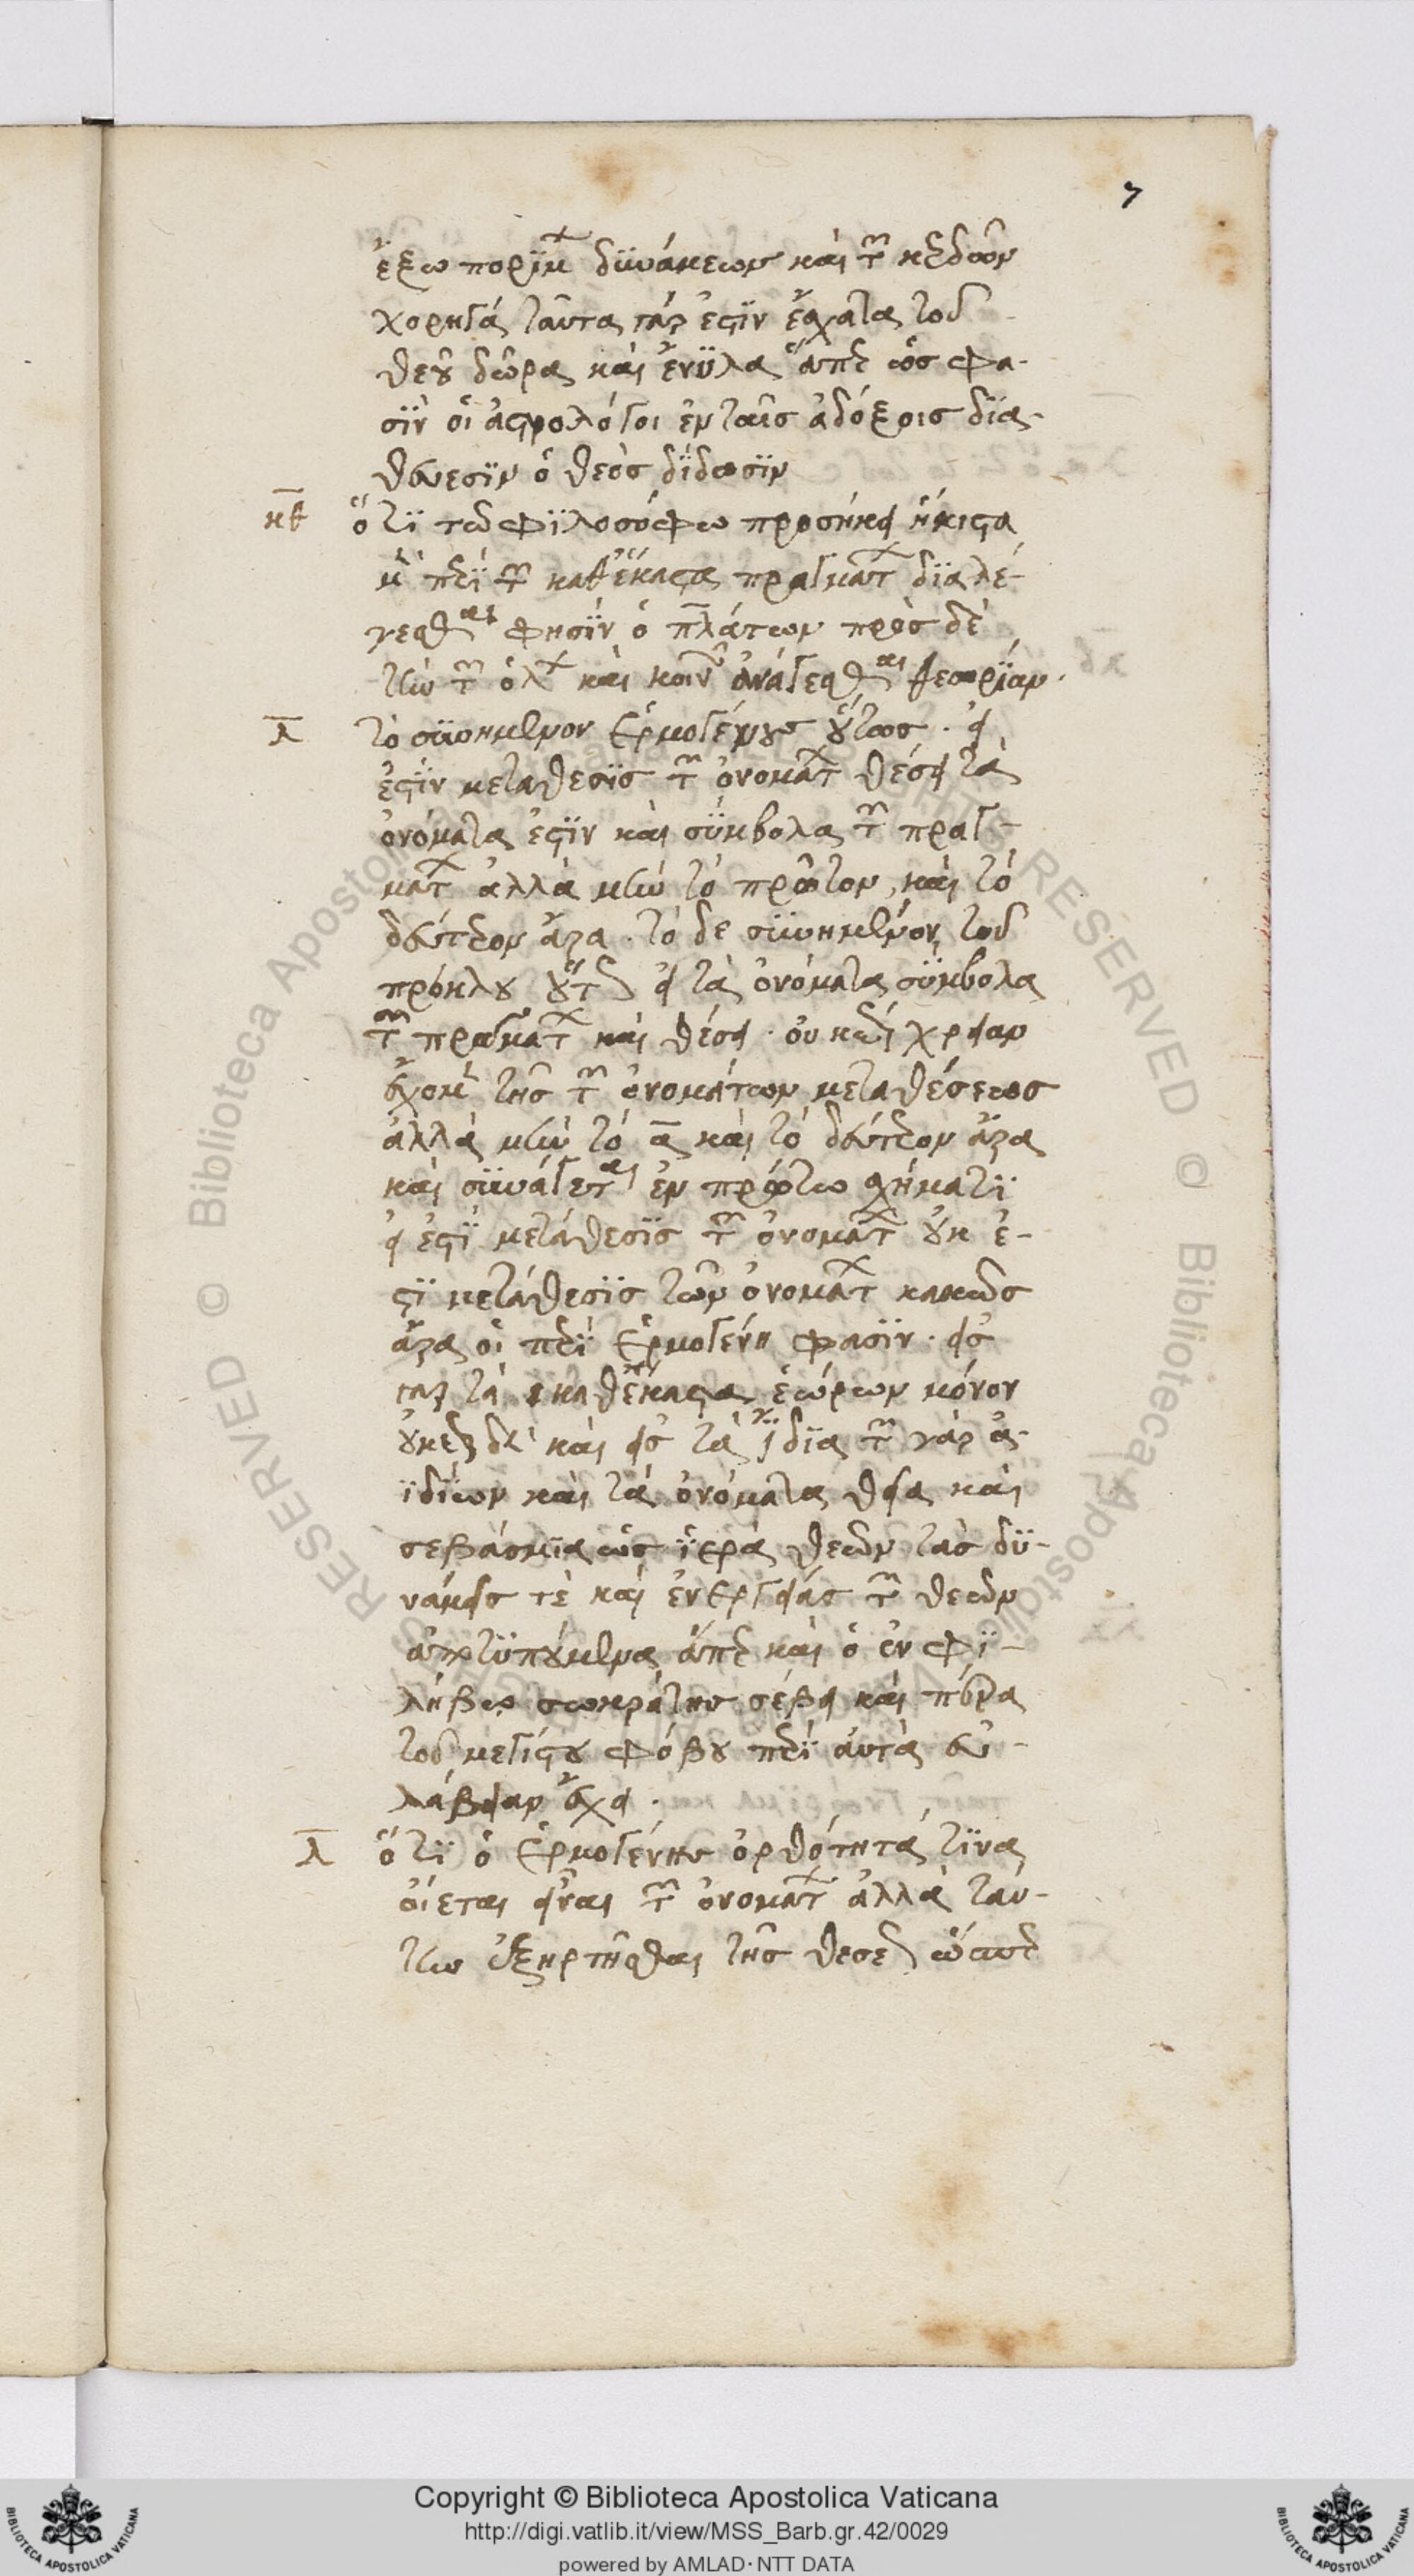 7
ἔξω πορίμων δυνάμεων καὶ τῶν κερδῶν
χορηγά ταῦτα γάρ ἐστιν ἔσχατα τοῦ
θεοῦ δῶρα καὶ ἔνυλα ἅπερ ὥς φα-
σιν οἱ ἀστρολόγοι ἐν ταῖς ἀδόξοις δια-
θέσεσιν ὁ θεὸς δίδωσιν
κθ ὅτι τῷ φιλοσόφῳ προσήκει ἥκιστα
μὲν περὶ τῶν καθέκαστα πραγμάτων διαλέ-
γεσθαι φησίν ὁ πλάτων πρὸς δὲ
τὴν τῶν ὅλων καὶ κοινῶν ἀνάγεσθαι θεωρίαν.
λ τὸ συνημμένον Ἑρμογένους οὕτως. εἰ
ἐστὶν μετάθεσις τῶν ὀνομάτων θέσει τὰ
ὀνόματα ἐστὶν καὶ σύμβολα τῶν πραγ-
μάτων ἀλλὰ μὴν τὸ πρῶτον, καὶ τὸ
δεύτερον ἄρα. τὸ δε συνημμένον τοῦ
πρόκλου οὕτως εἰ τὰ ὀνόματα σύμβολα
τῶν πραγμάτων καὶ θέσει. οὐκέτι χρείαν
ἔχομεν τῆς τῶν ὀνομάτων μεταθέσεως
ἀλλὰ μὴν τὸ α καὶ τὸ δεύτερον ἄρα
καὶ συνάγεται ἐν πρώτῳ σχήματι
εἰ ἐστὶ μετάθεσις τῶν ὀνομάτων οὐκ ἐ-
στὶ μετάθεσις τῶν ὀνομάτων κακῶς
ἄρα οἱ περὶ Ἑρμογένη φασὶν. εἰς
γὰρ τὰ καθέκαστα ἑώρων μόνον
οὐκέτι δὲ καὶ εἰς τὰ ἴδια τῶν γὰρ ἀ-
ϊδίων καὶ τὰ ὀνόματα θεῖα καὶ
σεβάσμια ὡς ἱερὰ θεῶν τὰς δυ-
νάμεις τὲ καὶ ἐνεργείας τῶν θεῶν
ἀποτυπούμενα ἅπερ καὶ ὁ ἐν φι-
λήβῳ σωκράτης σέβει καὶ πέρα
τοῦ μεγίστου φόβου περὶ αὐτὰ εὐ-
λάβειαν ἔχει.
λ ὅτι ὁ Ἑρμογένης ὀρθότητά τινα
οἴεται εἶναι τῶν ὀνομάτων ἀλλὰ ταύ-
την ἐξηρτῆσθαι τῆς θέσεως ὥσπερ
Copyright © Biblioteca Apostolica Vaticana
http://digi.vatlib.it/view/MSS_Barb.gr.42/0029
powered by AMLAD·NTT DATA